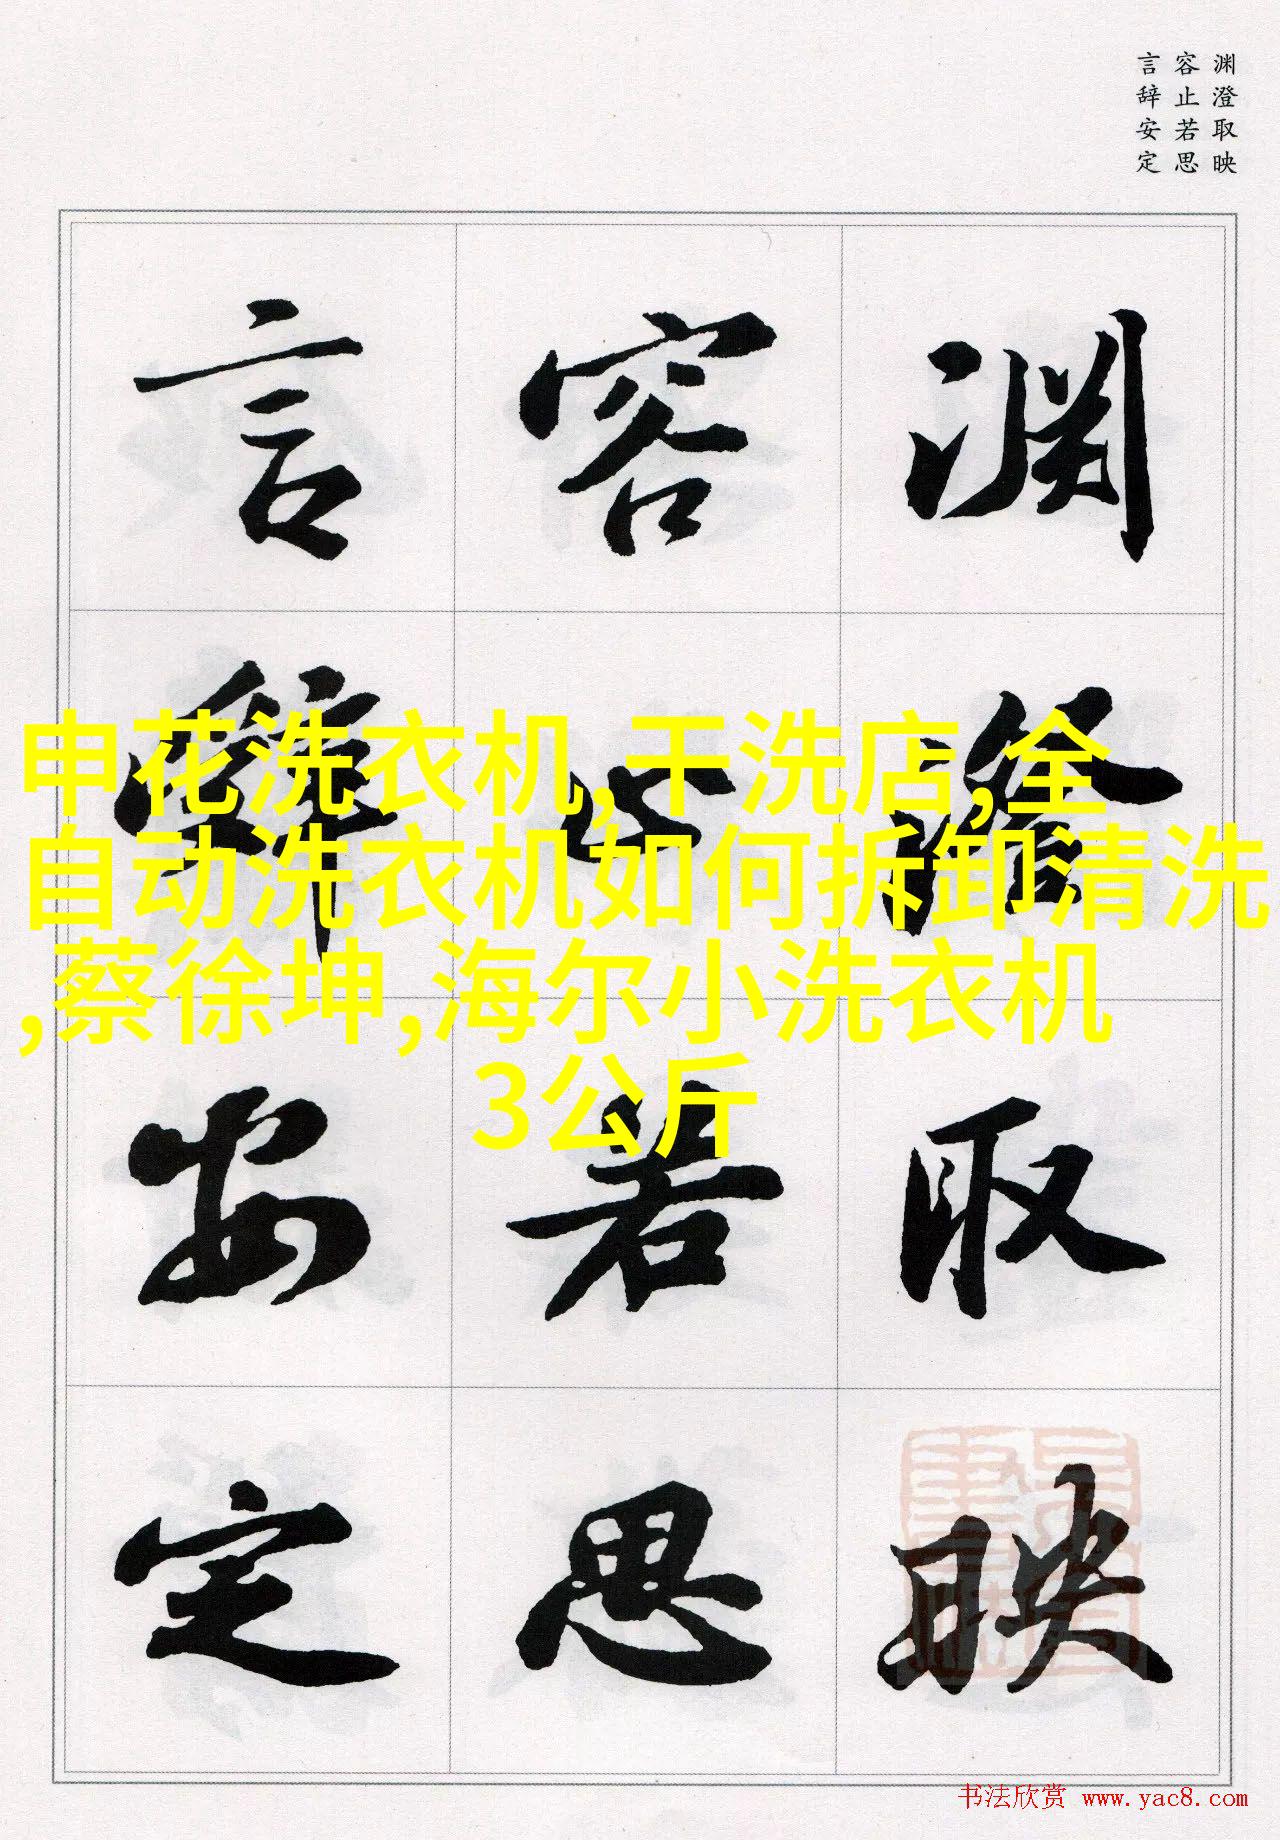 渊澄取映
容止若思
言辞安定
渊澄取映
容止若思
言辞安定
申花洗衣机,干洗店,全
自动洗衣机如何拆卸清洗
,蔡徐坤,海尔小洗衣机
3公斤
书法欣赏 www.yac8.com